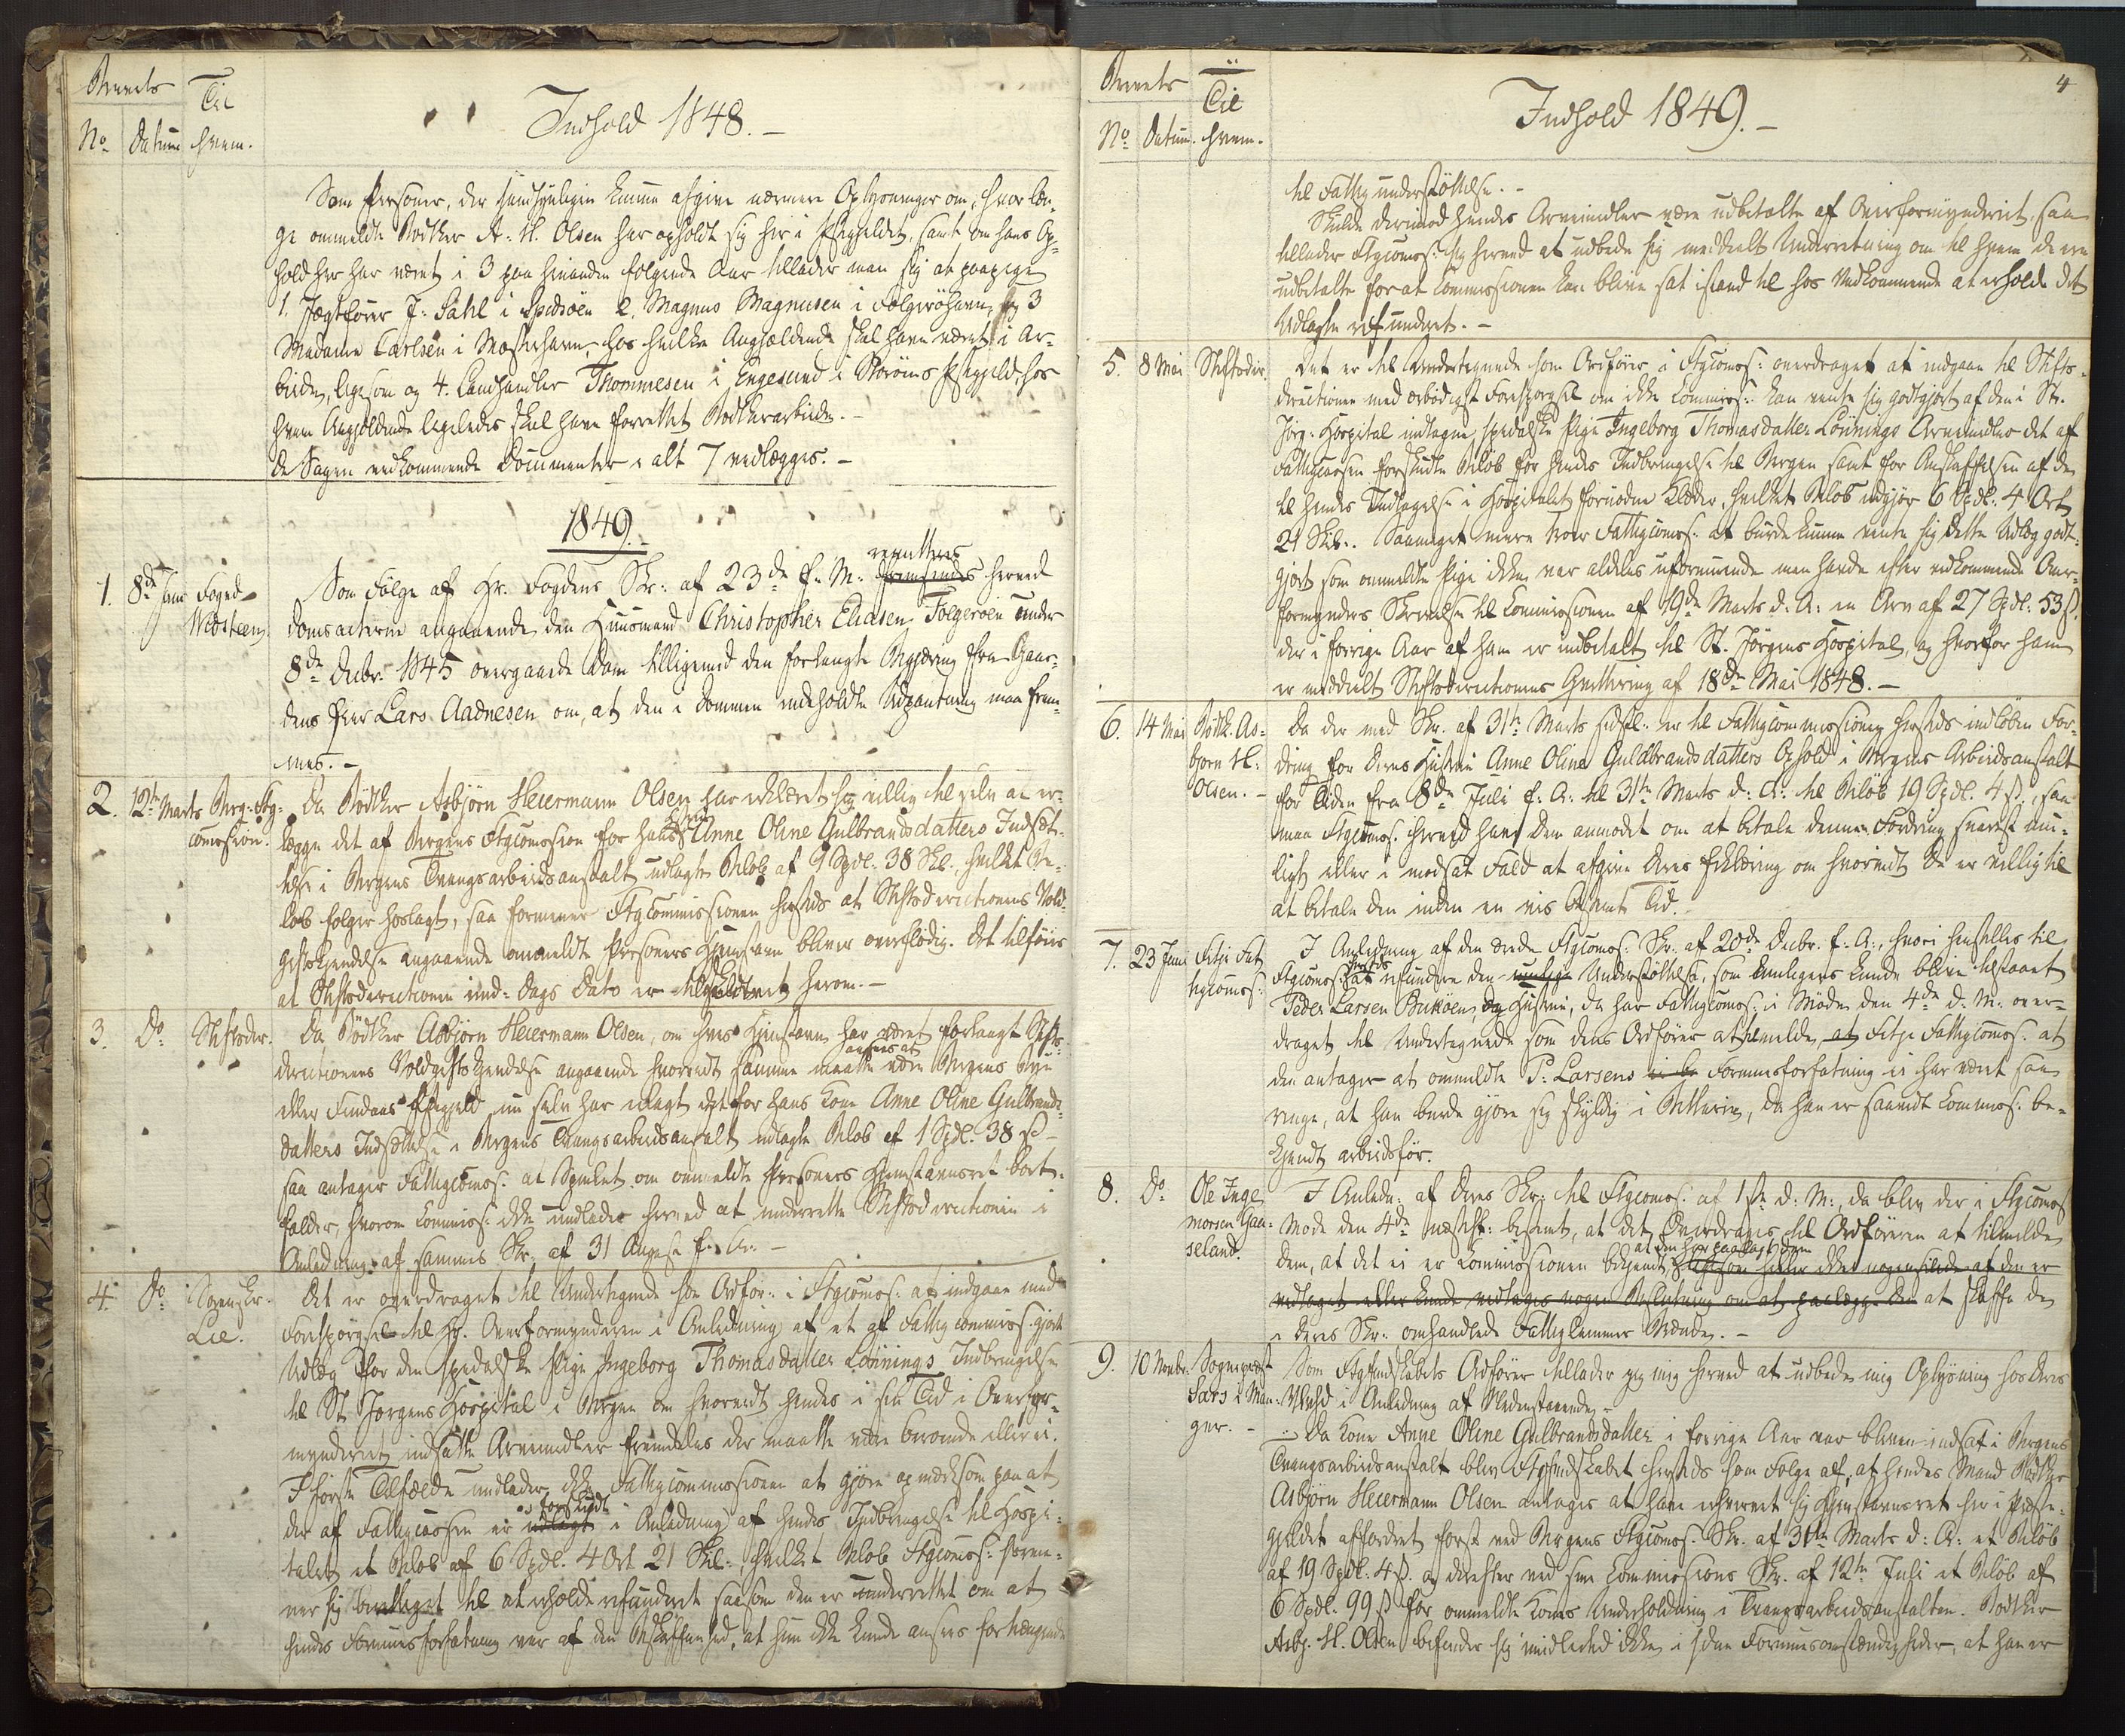 Brevets
No. Datum
Til
hvem.
Indhold 1848.-
Som Personer, der sandsynligen kunne afgive nærmere Oplysninger om, hvor læn-
ge ommeldte Bødker A. H. Olsen har opholdt sig her i Præstegjeldet, samt om hans Op-
hold her har været i 3 paa hinanden følgende Aar tillader man sig at paapege
1. Jægtfører J. Dahl i Spidsöen 2. Magnus Magnusen i Folgeröhavn, og 3
Madame Carlsen i Mosterhavn, hos hvilke Angjældende skal have været i Ar-
beide, ligesom og 4. Landhandler Thommesen i Engesund i Præstegjeld, hos
hvem Angjeldende ligeledes skal have forrettet Bödkerarbeide.-
de Sagen vedkommende Documenter i alt 7 vedlægges.-
1849.-
1. 8de Janr Foged
Widsteen
Som Fölge af Hr. Fogdens Skr: af 23de f. M. fremsendes remitteres herved
Domsacterne angaaende den Huusmand Christopher Eliasen Folgeröen under
8de Decbr. 1845 overgaaede Dom tilligemed den forlangte Begjæring fra Gaar-
dens Eier Lars Aadnesen om, at den i Dommen indeholdte Udpantning maa frem-
mes.-
2. 12te Marts Berg: Ftg:
comission.
Da Bödker Asbjørn Heiermann Olsen har erklæret sig villig til selv at er-
lægge det af Bergens Ftgcomission for hans Kone Anne Oline Gulbrandsdatters Indsæt-
telse i Bergens Tvangsarbeidsanstalt udlagte Beløb af 1 Spdl. 38 Skl., hvilket Be-
løb følger hoslagt, saa formener Ftgcommissionen herstæds at Stiftsdirectionens Vold-
giftskjendelse angaaende ommeldte Persones Hjemstavn bliver overflødig. Det tilföies
at Stiftsdirectionen und: Dags Dato er tilskrevet herom.-
3. Do. Stiftsdir.
Da Bödker Asbjørn Heiermann Olsen, om hvis Hjemstavn har været forlangt Stifts-
directionens Voldgiftskjendelse angaaende hvorvidt samme maatte ansees at være Bergens Bye
eller Findaas Prgjeld, nu selv har erlagt det for hans Kone Anne Oline Gulbrands-
datters Indsættelse i Bergens Tvangsarbeidsanstalt udlagte Beløb af 1 Spdl. 38 ß -
saa antager Fattigcomos: at Spmlet om ommeldte Persones Hjemstavnsret bort-
falder, hvorom Commiss: ikke undlader herved at underrette Stiftsdirectionen i
Anledning af sammes Skr. af 31 August f. A.-
4. Do. Sorenskr.
Lie.
Det er overdraget til Undertegnede som Ordfør: i Ftgcomos: at indgaae med
Forespörgsel til Hr. Overformynderen i Anledning af et af Fattigcommiss. gjort
Udlæg for den spedalske Pige Ingeborg Thomasdatter Lönnings Indbringelse
til St. Jörgens Hospital i Bergen om hvorvidt hendes i sin Tid i Overfor-
mynderiet indsatte Arvemidler fremdeles der maatte være beroende eller ei.
I förste Tilfælde undlader ikke Fattigcommissionen at gjøre opmærksom paa at
der af Fattigcassen er udlagt forskudt i Anledning af hendes Indbringelse til Hospi-
talet et Beløb af 6 Spdl. 4 Ort 21 Skl., hvilket Beløb Ftgcomos: forme-
ner sig berettiget til at erholde refunderet saasom den er underrettet om at
hendes Formuesforfatning var af den Beskaffenhed, at hun ikke kunde ansees fortrængende
4
Brevets
No. Datum.
Til
hvem.
Indhold 1849.-
til Fattigunderstöttelse.-
Skulde derimod hendes Arvemidler være udbetalte af Overformynderiet, saa
tillader Ftgcomos: sig herved at udbede sig meddeelt Underretning om til hvem de ere
udbetalte for at Commissionen kan blive sat istand til hos Vedkommende at erholde det
Udlagte refunderet.-
5. 8 Mai Stiftsdir.
Det er til Undertegnede som Ordfører i Ftgcomos: overdraget at indgaae til Stifts-
directionen med ærbödigst Forespörgsel om ikke Commiss: kan vente sig godtgjort af den i St.
Jørg: Hospital indtagne spedalske Pige Ingeborg Thomasdatter Lönnings Arvemidler det af
Fattigcassen forskudte Beløb for hendes Indbringelse til Bergen samt for Anskaffelsen af de
til hendes Indlæggelse i Hospitalet fornødne Klæder, hvilket Beløb udgjør 6 Spdl. 4 Ort
21 Skl.. Saameget mere troer Fattigcomos: at burde kunne vente sig dette Udlæg godt-
gjort som ommeldte Pige ikke var aldeles uformuende men havde efter vedkommende Over-
formynders Skrivelse til Commissionen af 19de Marts d. A. en Arv af 27 Spdl. 53 ß,
der i forrige Aar af ham er indbetalt til St. Jørgens Hospital, og hvorfor ham
er meddelt Stiftsdirectionens Qvittering af 18de Mai 1848.-
6. 14 Mai Bödk. As-
björn H.
Olsen.-
Da der med Skr. af 31te Marts sidstl. er til Fattigcommissionen herstæds indløben For-
dring for Deres Hustru Anne Oline Guldbrandsdatters Ophold i Bergens Arbeidsanstalt
for Tiden fra 8de Juli f. A. til 31te Marts d. A. til Beløb 19 Spdl. 4 ß., saa
maa Ftgcomos: herved have Dem anmodet om at betale denne Fordring snarest mu-
ligt eller i modsat Fald at afgive Deres Erklæring om hvorvidt De er villig til
at betale den inden en vis bestemt Tid.
7. 23 Juni Fitje Fat
tigcomos:
I Anledning af den ærede Ftgcomos: Skr. af 20de Decbr. f. A., hvori henstilles til
Ftgcomos: herstæds at refundere den Understöttelse, som ... kunde blive tilstaaet
Peder Larsen Bukkøen og Hustru, da har Fattigcomos: i Møde den 4de d. M. over-
draget til Undertegnede som dens Ordfører at tilmelde Fitje Fattigcomos: at
den antager at ommeldte P. Larsens Formuesforfatning ei har været saa
ringe, at han burde gjøre sig skyldig i Betlerie, da han er saavidt Commos: be-
kjendt arbeidsför.
8. Do. Ole Inge
morsen Gaa-
seland.
I Anledn: af Deres Skr. til Ftgcomos: af 1ste d. M., da blev der i Ftgcomos
Møde den 4de næstefter: bestemt, at det Overdrages til Ordföreren at tilmelde
Dem, at det ei er Commissionen bekjendt, at den har paalagt Dem ligesom heller ikke nogensinde at den er
vedtaget eller kunde vedtages nogen Beslutning om at paalægge Dem at skaffe de
i Deres Skr. omhandlede Fattiglemmer Brænde.-
9. 10 Novbr. Sogneprest
Sars i Man-
ger.-
Som Ftgforstkabets Ordfører tillader jeg mig herved at udbede mig Oplysning hos Deres
i Anledning af Nedenstaaende.-
Da Kone Anne Oline Gulbrandsdatter i forrige Aar var bleven indsat i Bergens
Tvangsarbeidsanstalt blev herstæds som Følge af, at hendes Mand Bödker
Asbjörn Heiermann Olsen antages at have erhvervet sig Hjemstavnsret her i Præste-
gjeldet affordret først ved Bergens Ftgcomos: Skr. af 31te Marts d. A. et Beløb
af 19 Spdl. 4 ß. og derefter ved sin Commissions Skr. af 12te Juli et Beløb af
6 Spdl. 99 ß for ommeldte Kones Underholdning i Tvangsarbeidsanstalten. Bödker
Asbj. H. Olsen befinder sig imidlertid ikke i sdan Formuesomstændigheder, at han er